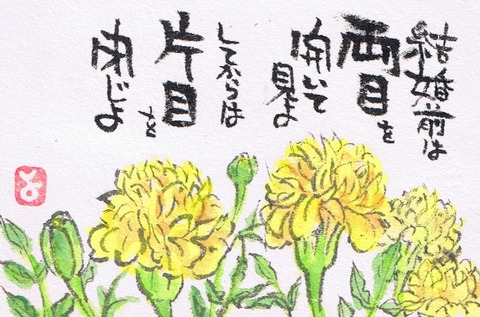 結婚前は
両目を
開いて
見よ
してからは
片目を
閉じよ
と